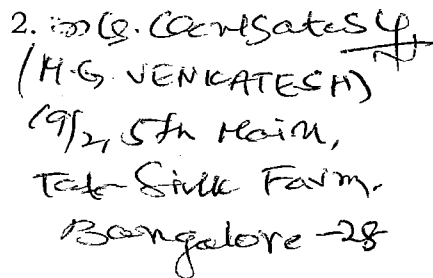 2.
(H.G. VENKATESH)
19/2, 5th Main,
Tata Silk Farm.
Bangalore -28